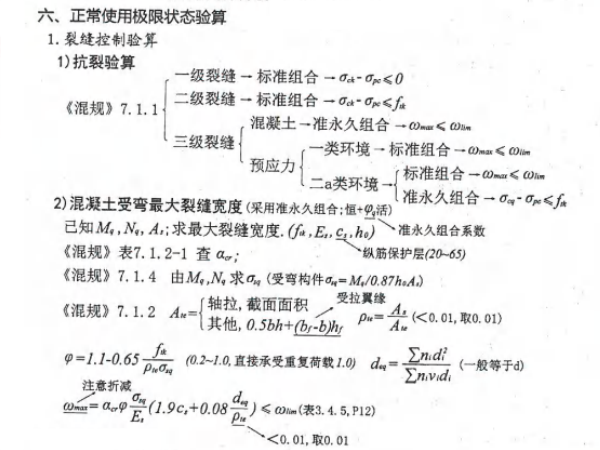 六、正常使用极限状态验算
1.裂缝控制验算
1)抗裂验算
《混规》7.1.1
一级裂缝→标准组合→σck-σpc≤0
二级裂缝→标准组合→σck-σpc≤ftk
三级裂缝
混凝土→准永久组合→ωmax≤ωlim
预应力
一类环境→标准组合→ωmax≤ωlim
二a类环境
标准组合→ωmax≤ωlim
准永久组合→σcq-σpc≤ftk
2)混凝土受弯最大裂缝宽度(采用准永久组合;恒+φq活)
已知Mq,Nq,As;求最大裂缝宽度.(ftk,Es,cs,h0) 准永久组合系数
《混规》表7.1.2-1 查 αcr; 纵筋保护层(20~65)
《混规》7.1.4 由Mq,Nq求σsq (受弯构件σsq=Mq/0.87h0As)
《混规》7.1.2 Ate={轴拉,截面面积 受拉翼缘
其他,0.5bh+(bf-b)hf ρte=As/Ate(<0.01,取0.01)
φ=1.1-0.65 ftk/ρteσsq (0.2~1.0,直接承受重复荷载1.0) deq=∑nidi²/∑nividi (一般等于d)
注意折减
ωmax=αcrφ σsq/Es(1.9cs+0.08 deq/ρte)≤ωlim(表3.4.5,P12)
<0.01,取0.01